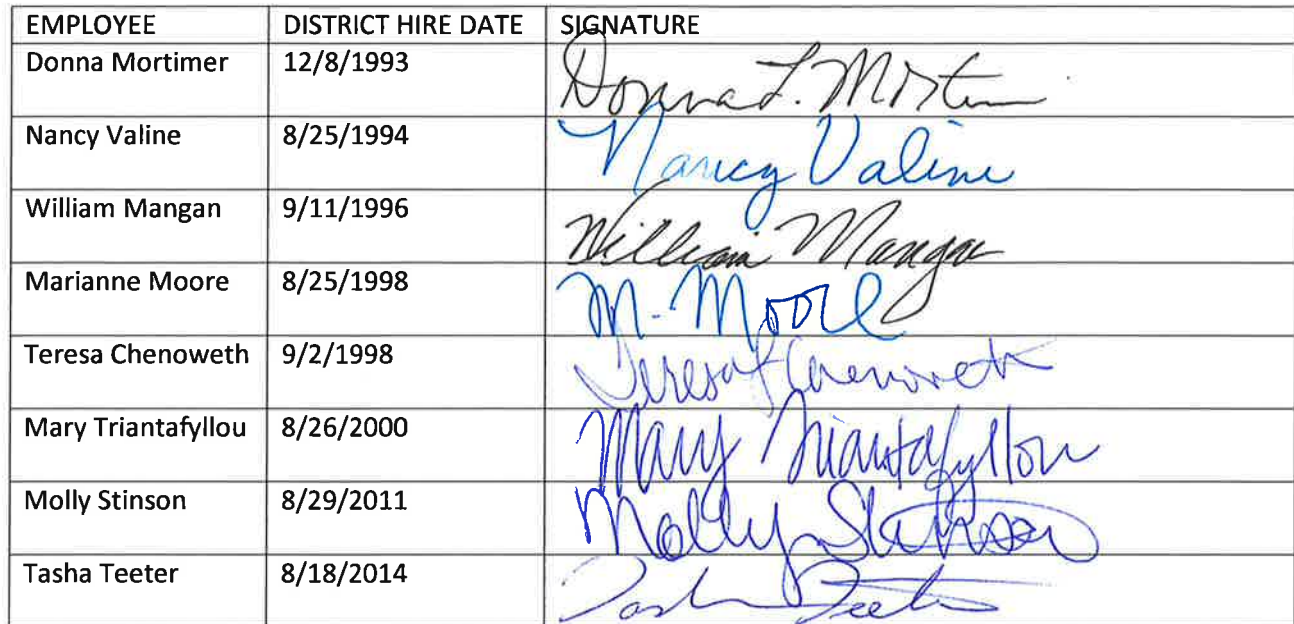 EMPLOYEE DISTRICT HIRE DATE SIGNATURE
Donna Mortimer 12/8/1993 Donna L. Mortim
Nancy Valine 8/25/1994 Nancy Valine
William Mangan 9/11/1996 William Mangan
Marianne Moore 8/25/1998 M. Moore
Teresa Chenoweth 9/2/1998 Teresa Chenoweth
Mary Triantafyllou 8/26/2000 Mary Triantafyllou
Molly Stinson 8/29/2011 Molly Stinson
Tasha Teeter 8/18/2014 Tasha Teeter